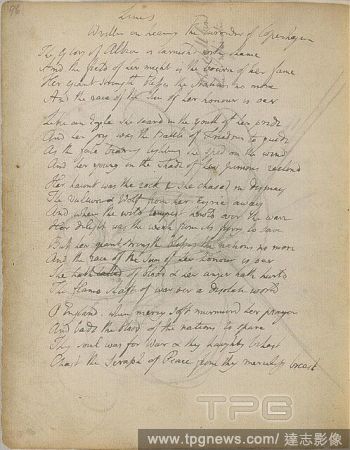 Lines
Written on hearing the surrender of Copenhagen
The Glory of Albion is tarnish'd with shame
And the field of her might is the source of her fame
Her giant strength the nations no more
And the race of the Sun of her honour is oer
Like an Eagle she soard in the youth of her pride
And her joy was the Battle of Freedom to guide
As the on the wind
And her young in the shade of her pinions reclind
Her haunt was the rock & she chased in dismay
The Vulture & Wolf from her Eyrie away
And when the wild tempest howls over the wave
Her delight was the weak from its fury to save
But her giant strength the nations no more
And the race of the Sun of her honour is oer
She hath of blood & her anger hath hurld
The flame of war oer a desolate world
O England when mercy soft murmurd her prayer
And bade the blood of the nations to spare
Thy soul was for War & thy haughty behest
Chas'd the Seraph of Peace from thy merciless breast
TPG
www.tpgnews.com / 達志影像